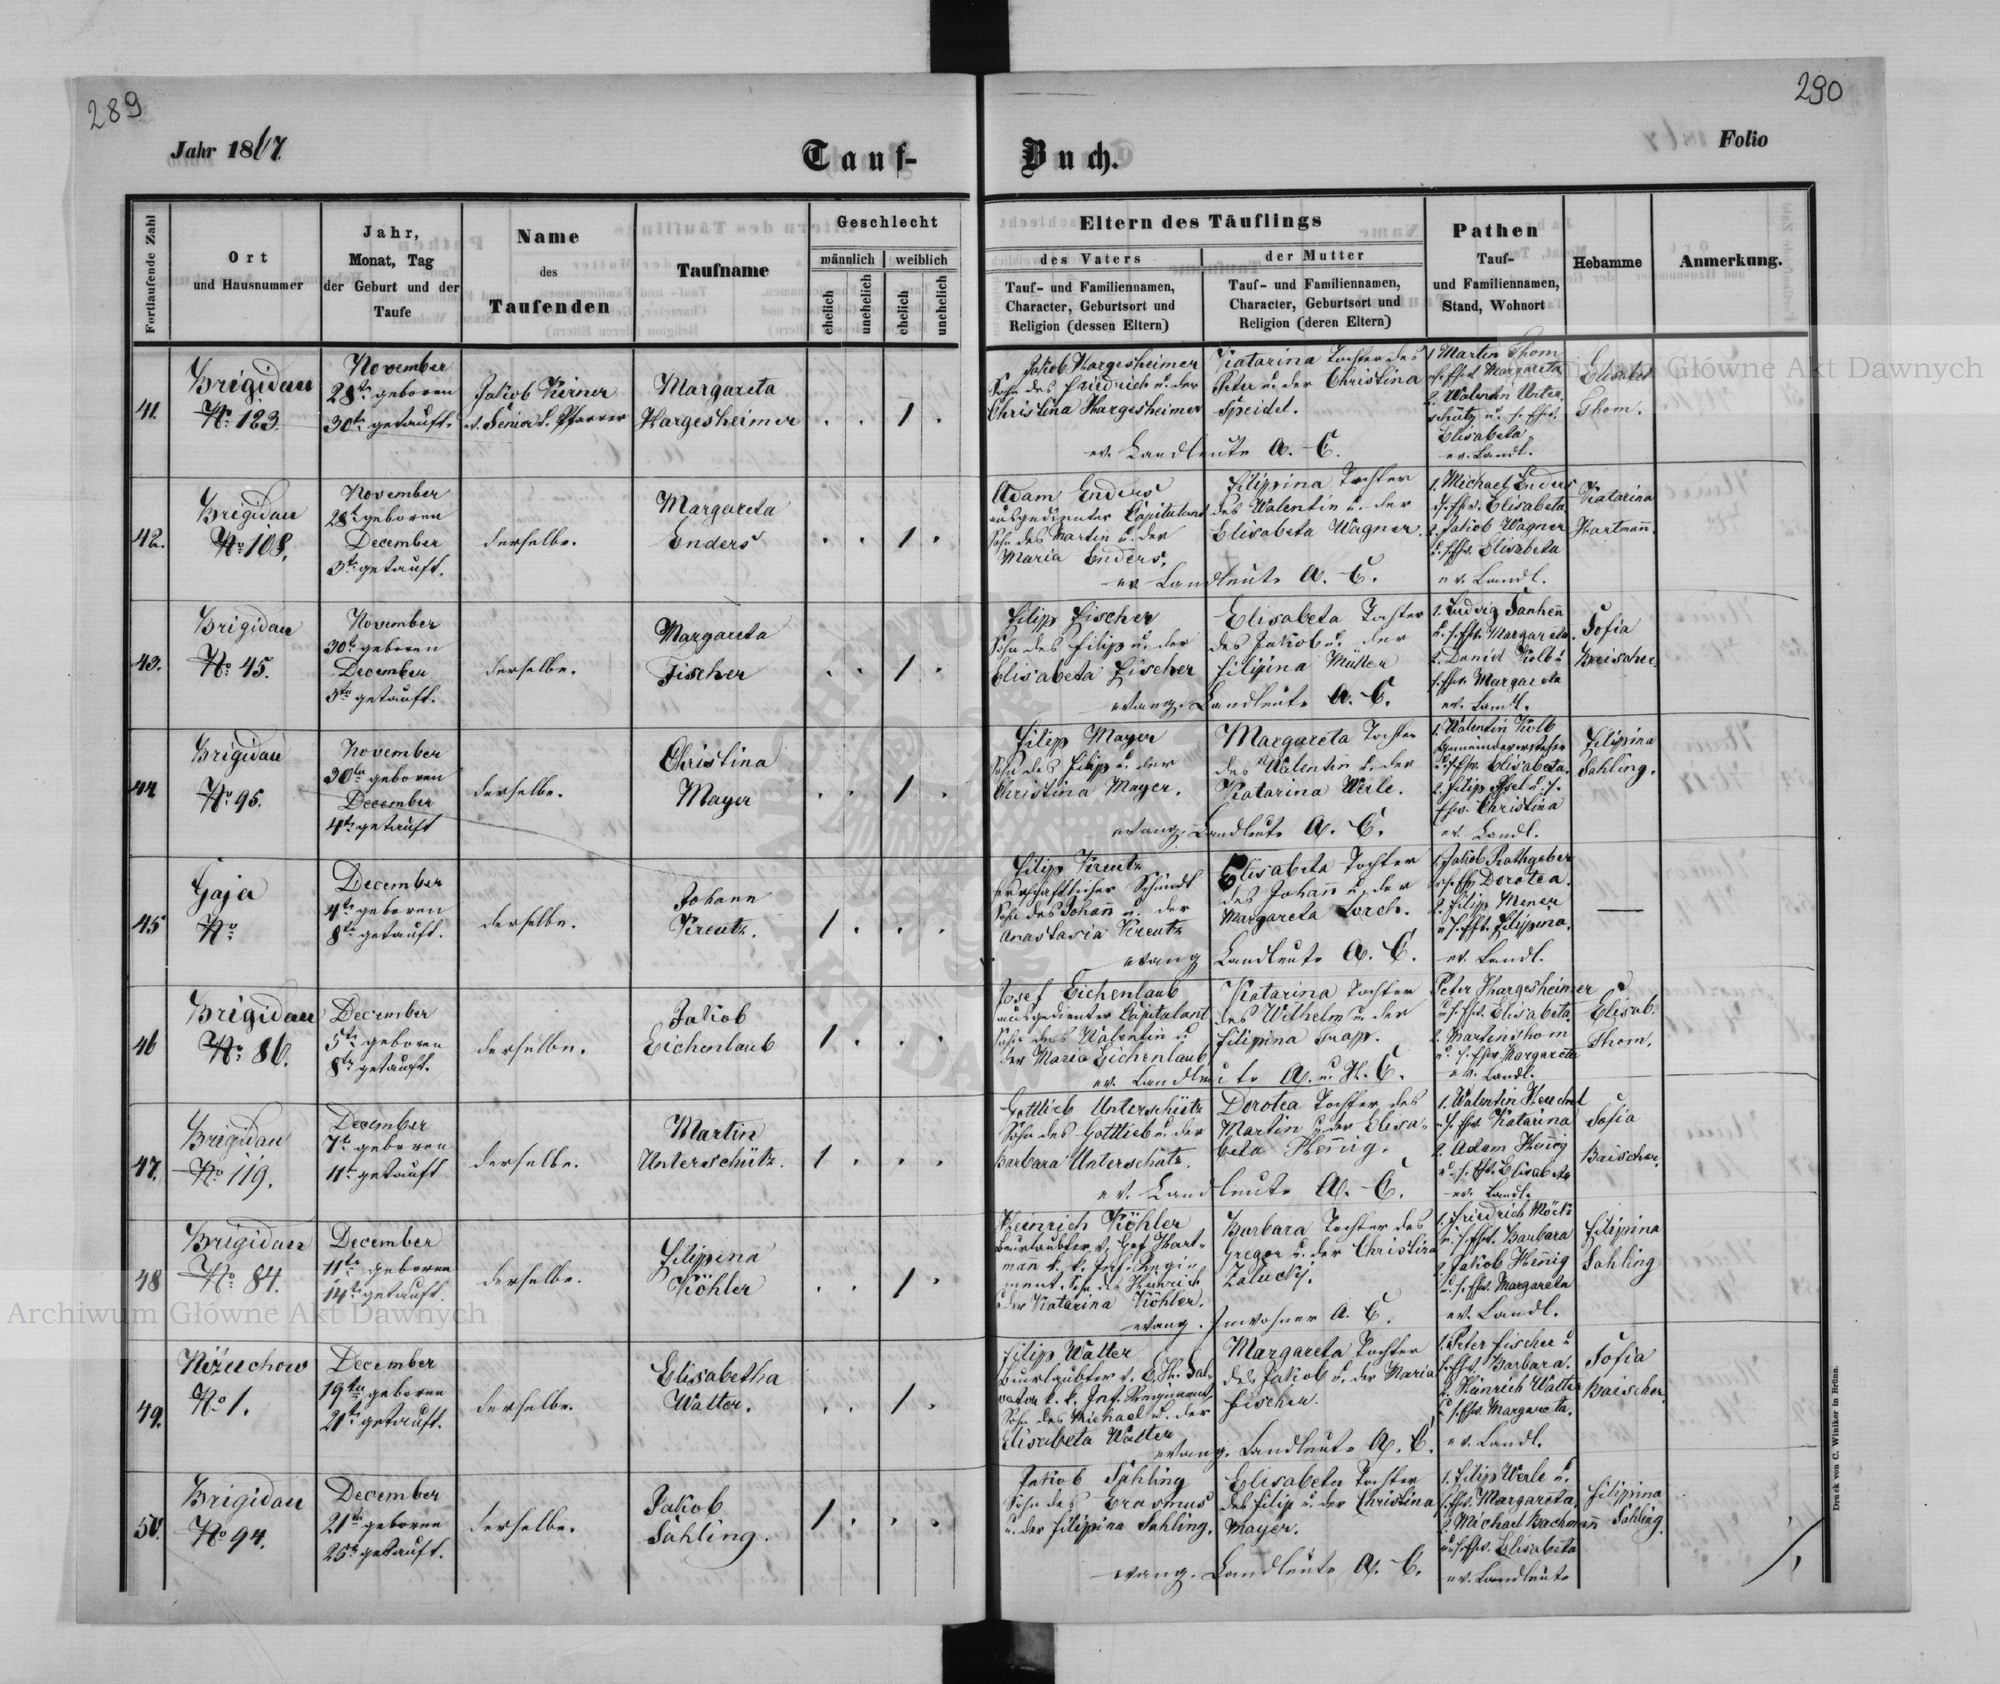 289
290
Jahr 1867.
Tauf-
Buch.
Folio
Fortlaufende Zahl
Ort
und Hausnummer
Jahr,
Monat, Tag
der Geburt und der
Taufe
Name
des
Taufenden
Taufname
Geschlecht
männlich
weiblich
ehelich
unehelich
ehelich
unehelich
Eltern des Täuflings
des Vaters
Tauf- und Familiennamen,
Character, Geburtsort und
Religion (dessen Eltern)
der Mutter
Tauf- und Familiennamen,
Character, Geburtsort und
Religion (deren Eltern)
Pathen
Tauf-
und Familiennamen,
Stand, Wohnort
Hebamme
Anmerkung.
41.
Brigidau
No. 123.
November
28te geboren
30te getauft.
Jakob Kerner
ev. Senior u. Pfarrer
Margareta
Hargesheimer
. . 1 .
Jakob Hargesheimer
Sohn des Friedrich u. der
Christina Hargesheimer
Katarina Tochter des
Peter u. der Christina
Speidel.
ev. Landleute A. C.
1. Martin Thom
u. s. Ehw. Margareta
2. Walentin Unter-
schütz u. s. Ehw.
Elisabeta
ev. Landl.
Elisabet
Thom.
42.
Brigidau
No. 108.
November
28te geboren
December
3te getauft.
derselbe.
Margareta
Enders
. . 1 .
Adam Enders
ausgedienter Capitulant
Sohn des Martin u. der
Maria Enders.
Filipina Tochter
des Walentin u. der
Elisabeta Wagner.
ev. Landleute A. C.
1. Michael Enders
u. s. Ehw. Elisabeta
2. Jakob Wagner
u. s. Ehw. Elisabeta
ev. Landl.
Katarina
Hartmann.
43.
Brigidau
No. 45.
November
30te geboren
December
3te getauft.
derselbe.
Margareta
Fischer
. . 1 .
Filip Fischer
Sohn des Filip u. der
Elisabeta Fischer
Elisabeta Tochter
des Jakob u. der
Filipina Müller
evang. Landleute A. C.
1. Ludwig
u. s. Ehw. Margareta.
2. Daniel Kolb u.
s. Ehw. Margareta
ev. Landl.
Sofia
Baischer.
44
Brigidau
No. 95.
November
30te geboren
December
4te getauft
derselbe.
Christina
Mayer
. . 1 .
Filip Mayer
Sohn des Filip u. der
Christina Mayer.
Margareta Tochter
des Walentin u. der
Katarina Werle.
evang. Landleute A. C.
1. Walentin Kolb
Gemeindevorsteher
u. s. Ehw. Elisabeta.
2. Filip u. s.
Ehw. Christina
ev. Landl.
Filipina
Sahling.
45
Gaja
No.
December
4te geboren
8te getauft.
derselbe.
Johann
Kreutz.
1 . . .
Filip Kreutz
Sohn des Johann u. der
Anastasia Kreutz
Elisabeta Tochter
des Johann u. der
Margareta Lorch.
evang Landleute A. C.
1. Jakob Rathgeber
u. s. Ehw. Dorotea.
2. Filip
u. s. Ehw. Filipina.
ev. Landl.
46
Brigidau
No. 86.
December
5te geboren
8te getauft.
derselbe.
Jakob
Eichenlaub
1 . . .
Josef Eichenlaub
ausgedienter Capitulant
Sohn des Walentin u
der Maria Eichenlaub
Katarina Tochter
des Wilhelm u. der
Filipina Trapp.
ev. Landleute A. u. H. C.
Peter Hargesheimer
u. s. Ehw. Elisabeta.
2. Martin Thom
u. s. Ehw. Margareta
ev. Landl.
Elisab.
Thom.
47.
Brigidau
No. 119.
December
7te geboren
11te getauft
derselbe.
Martin
Unterschütz.
1 . . .
Gottlieb Unterschütz
Sohn des Gottlieb u. der
Barbara Unterschütz.
Dorotea Tochter des
Martin u. der Elisa-
beta Hennig.
ev. Landleute A. C.
1. Walentin
u. s. Ehw. Katarina
2. Adam Hennig
u. s. Ehw. Elisabeta
ev. Landl.
Sofia
Baischer.
48
Brigidau
No. 84.
December
11te geboren
14te getauft.
derselbe.
Filipina
Köhler
. . 1 .
Heinrich Köhler
Beurlaubter v. Graf Hart-
man k. k. Inf. Regi-
ment. Sohn des Heinrich
u. der Katarina Köhler.
Barbara Tochter des
Gregor u. der Christina
Zalucki.
evang. Inwohner A. C.
1. Friedrich
u. s. Ehw. Barbara
2. Jakob Hennig
u. s. Ehw. Margareta
ev. Landl.
Filipina
Sahling
49.
Niżuchow
No. 1.
December
19te geboren
21te getauft.
derselbe.
Elisabetha
Walter.
. . 1 .
Filip Walter
Beurlaubter v. E. H. Sal-
vator k. k. Inf. Regiment
Sohn des Michael u. der
Elisabeta Walter
Margareta Tochter
des Jakob u. der Maria
Fischer.
evang. Landleute A. C.
1. Peter Fischer u
s. Ehw. Barbara.
2. Heinrich Walter
u. s. Ehw. Margareta.
ev. Landl.
Sofia
Baischer.
50.
Brigidau
No. 94.
December
21te geboren
26te getauft.
derselbe.
Jakob
Sahling.
1 . . .
Jakob Sahling
Sohn des Erasmus
u. der Filipina Sahling.
Elisabeta Tochter
des Filip u. der Christina
Mayer.
evang. Landleute A. C.
1. Filip Werle u.
s. Ehw. Margareta.
2. Michael Bachmann
u. s. Ehw. Elisabeta
ev. Landleute
Filipina
Sahling.
Druck von C. Winiker in Brünn.
Archiwum Główne Akt Dawnych
Archiwum Główne Akt Dawnych